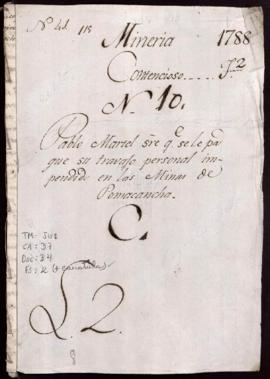 Nº 4d. 115
Mineria 1788
Contencioso..... J.2
Nº 10.
Pablo Martel sre qe. se le pa
gue su travajo personal im-
pendido en las Minas de
Pomacancha.
C
TM-JU2
CA: 37
Doc: 34
Fs: 2 (+ caratula)
L. 2.